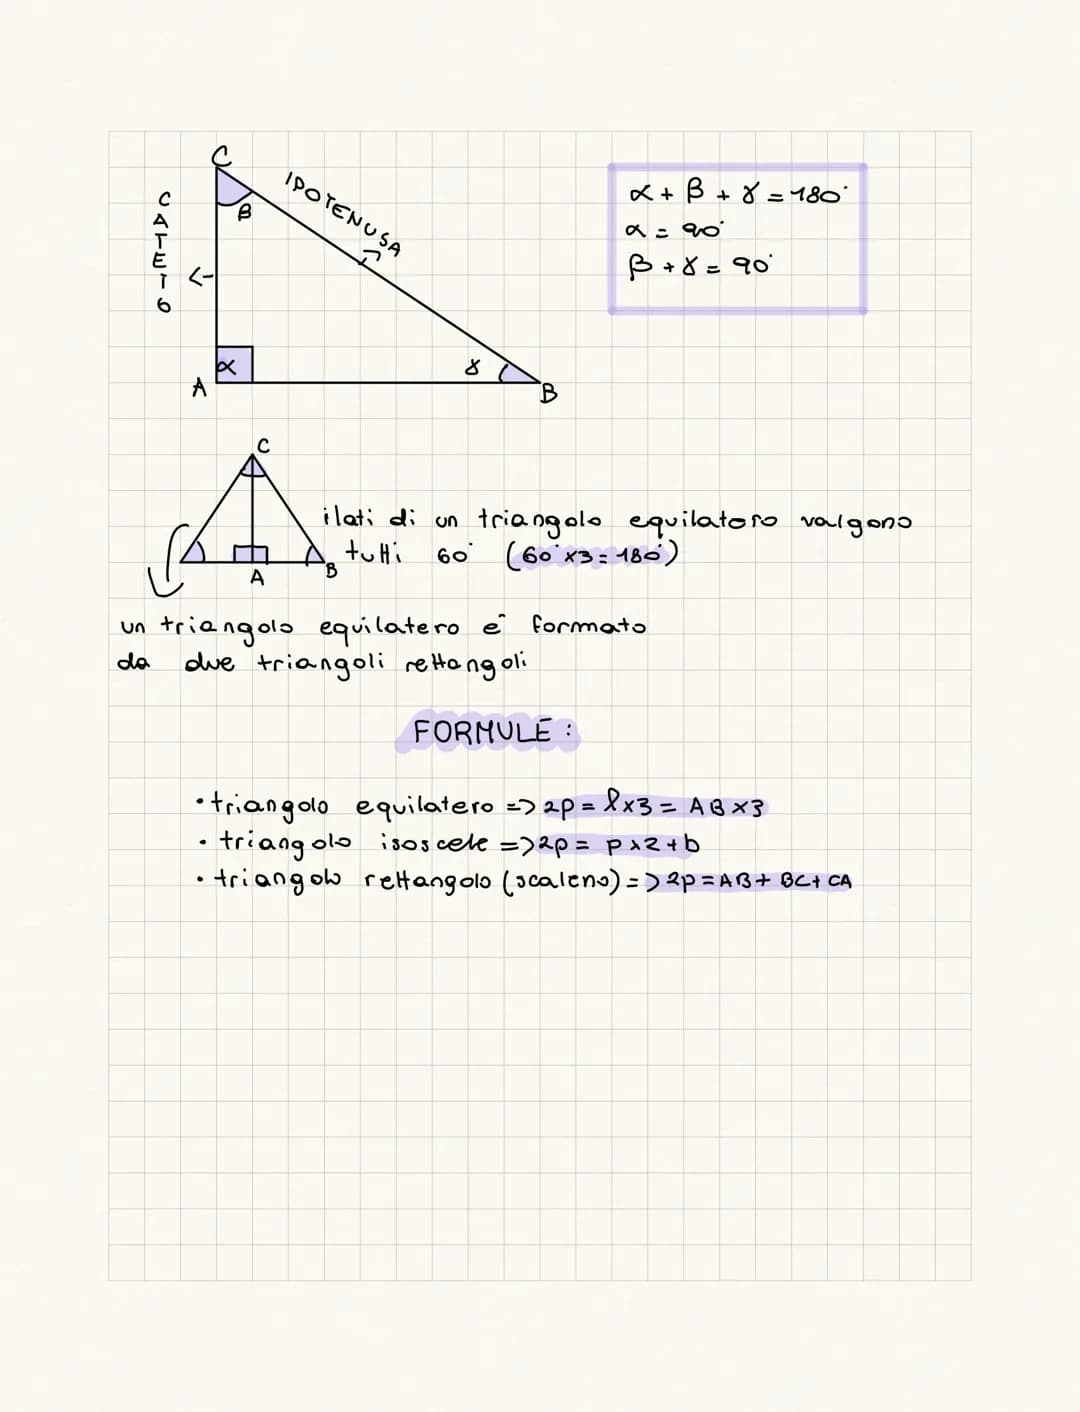 C
CATETO
IPOTENUSA
β
α
A
γ
B
α + β + γ = 180°
α = 90°
β + γ = 90°
C
A
B
i lati di un triangolo equilatero valgono
tutti 60° (60°x3=180°)
un triangolo equilatero è formato
da due triangoli rettangoli
FORMULE:
•triangolo equilatero => 2p = l x3 = AB x3
• triangolo isoscele => 2p = p x2+b
• triangolo rettangolo (scaleno) => 2p = AB + BC + CA